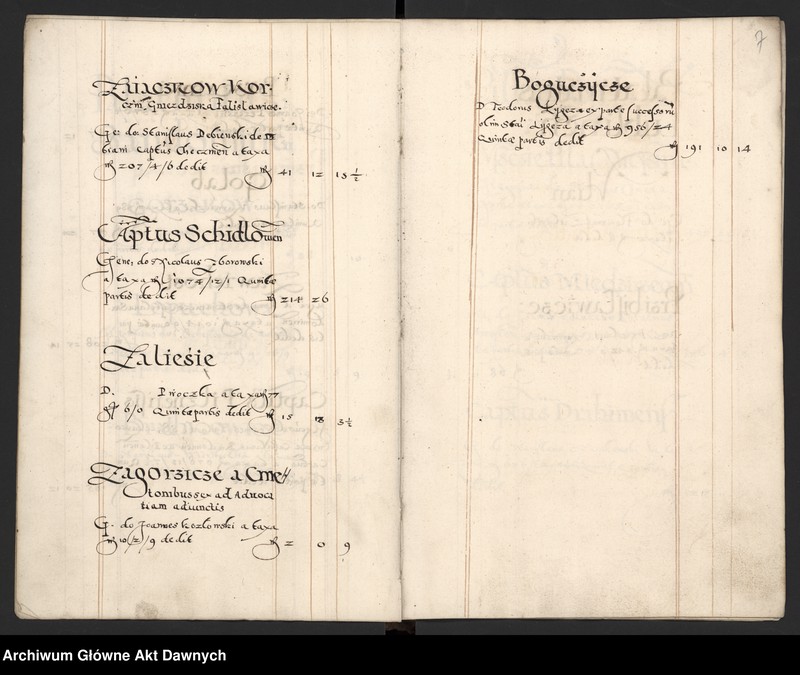 Zaiączkow Kor-
czin, Gniezdziska Falislawice.
Ge: do: Stanislaus Debienski de
biani Capt⁹ Checzinen a taxa
207/4/6 dedit 41 12 15 1/2
Captus Schidlowien
Gene: do: Nicolaus Zborowski
a taxa 1074/12/1 Quintæ
partis dedit 214 26
Zaliesie
D. Proczka a taxa 77
gr 6/0 Quintæ partis dedit 15 18 3 1/2
Zagorzicze a Cme
tonibus sex ad Advoca
tiam adiunctis
G. do Joannes Kozlowski a taxa
10/2/9 dedit 2 0 9
7
Boguczicze
D Teodorus Ligeza ex parte successorū
olim Stai Ligeza a taxa 956/24
Quintæ partis dedit
191 10 14
Archiwum Główne Akt Dawnych